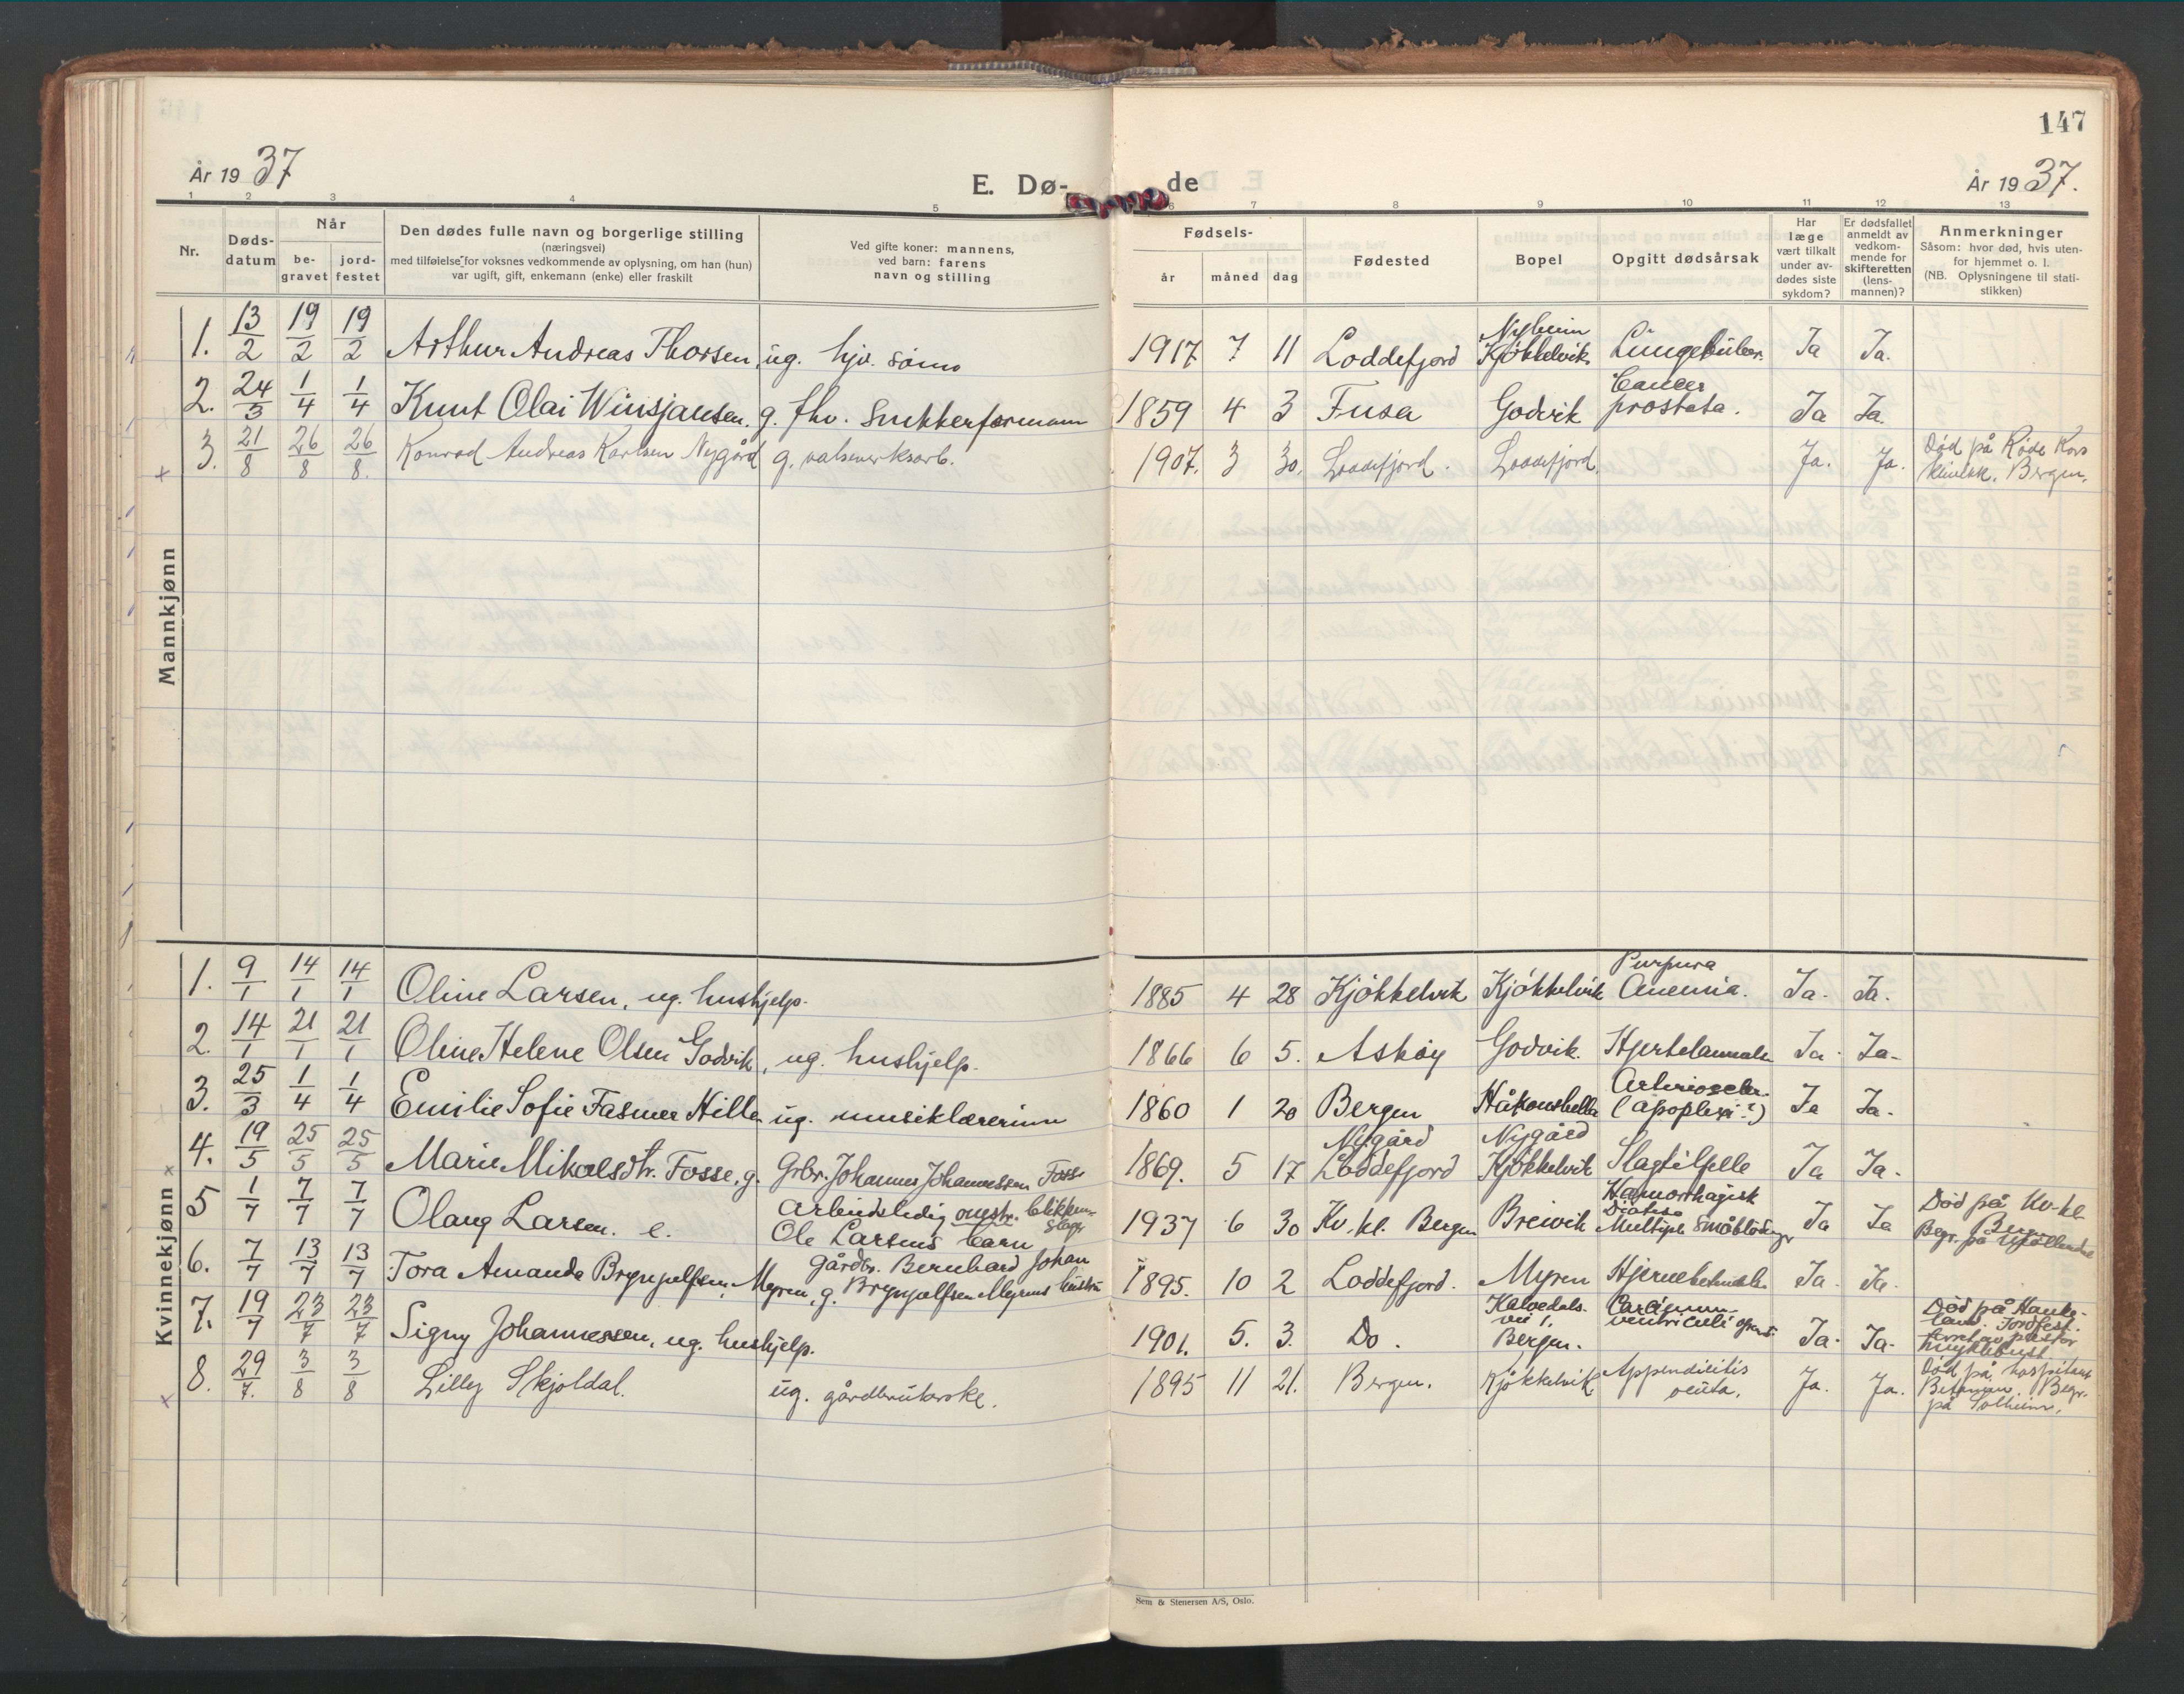 147
År 1937
E. Dø-
de
År 1937.
1 2 3 4 5 6 7 8 9 10 11 12 13
Nr.
Døds-
datum
Når
be-
gravet
jord-
festet
Den dødes fulle navn og borgerlige stilling
(næringsvei)
med tilføielse for voksnes vedkommende av oplysning, om han (hun)
var ugift, gift, enkemann (enke) eller fraskilt
Ved gifte koner: mannens,
ved barn: farens
navn og stilling
Fødsels-
år måned dag
Fødested
Bopel
Opgitt dødsårsak
Har
læge
vært tilkalt
under av-
dødes siste
sykdom?
Er dødsfallet
anmeldt av
vedkom-
mende for
skifteretten
(lens-
mannen)?
Anmerkninger
Såsom: hvor død, hvis uten-
for hjemmet o. l.
(NB. Oplysningene til stati-
stikken)
Mannkjønn
1. 13/2 19/2 19/2 Arthur Andreas Thorsen, ug. hjv. sønn 1917 7 11 Loddefjord Nyheim Kjøkkelvik Lungetuber. Ja Ja.
2. 24/3 1/4 1/4 Knut Olai Winsjansen. g. fhv. snekkerformann 1859 4 3 Fusa Godvik Cancer prostata. Ja Ja.
3. 21/8 26/8 26/8. Konrad Andreas Karlsen Nygård g. valseverksarb. 1907. 3 30. Loddefjord. Loddefjord. Ja. Ja. Død på Røde Kors
klinikk, Bergen.
Kvinnekjønn
1. 9/1 14/1 14/1 Oline Larsen, ug. hushjelp. 1885 4 28 Kjøkkelvik Kjøkkelvik Purpura Anemia. Ja. Ja.
2. 14/1 21/1 21/1 Oline Helene Olsen Godvik, ug. hushjelp. 1866 6 5. Askøy Godvik. Hjertelammelse Ja. Ja.
3. 25/3 1/4 1/4 Emilie Sofie Fasmer Hille ug. musiklærerinne 1860 1 20 Bergen Håkonshella Arterioscler. (apoplexi?) Ja Ja.
4. 19/5 25/5 25/5 Marie Mikalsdtr. Fosse, g. Grbr. Johannes Johannessen Fosse 1869. 5 17 Nygård Loddefjord Nygård Kjøkkelvik Slagtilfelle Ja Ja.
5 1/7 7/7 7/7 Olaug Larsen. e. Arbeidsledig blikken-
slager
Ole Larsens barn 1937 6 30 Kv.-kl. Bergen Breivik Hæmorrhagisk
Diatese
Multiple småblødngr Ja Ja Død på Kv-kl.
Bergen
Begr. på Møllendal
6. 7/7 13/7 13/7 Tora Amanda Brynjulfsen, Myren, g. Gårdbr. Bernhard Johan
Brynjulfsen Myrens hustru 1895. 10 2 Loddefjord. Myren Hjernebetennelse Ja. Ja.
7. 19/7 23/7 23/7 Signy Johannessen, ug. hushjelp. 1901. 5. 3. Do. Kalvedals-
vei 1,
Bergen. Carcinum
ventriculi opert. Ja. Ja. Død på Hauke-
land. Jordfest.
pastor
8. 29/7. 3/8 3/8 Lilly Skjoldal. ug. gårdbrukerske. 1895 11 21. Bergen. Kjøkkelvik Appendicitis
acuta. Ja. Ja. Død på hospitalet
Betanien. Begr.
på Solheim.
Sem & Stenersen A/S, Oslo.